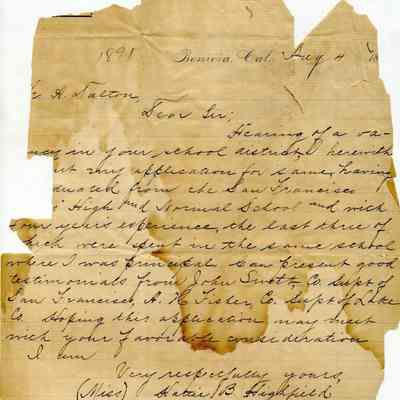 1891 Benicia, Cal. Aug 4
A. Dalton,
Dear Sir;
Hearing of a va-
ncy in your school district, I herewith
my application for same, having
duated from the San Francisco
High and Normal School and with
four years experience, the last three of
which were spent in the same school
where I was principal. Can present good
testimonials from John Swett Co. Supt of
San Francisco, A. H. Fisher, Co. Supt of Lake
Co. Hoping this application may meet
with your favorable consideration
I am
Very respectfully yours,
(Miss) Hattie B. Highfield